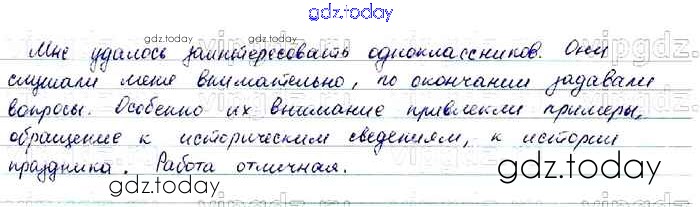 gdz.today
Мне удалось заинтересовать одноклассников. Они
слушали меня внимательно, по окончании задавали
вопросы. Особенно их внимание привлекли примеры,
обращение к историческим сведениям, к истории
праздника. Работа отличная.
gdz.today
gdz.today
gdz.today
gdz.today